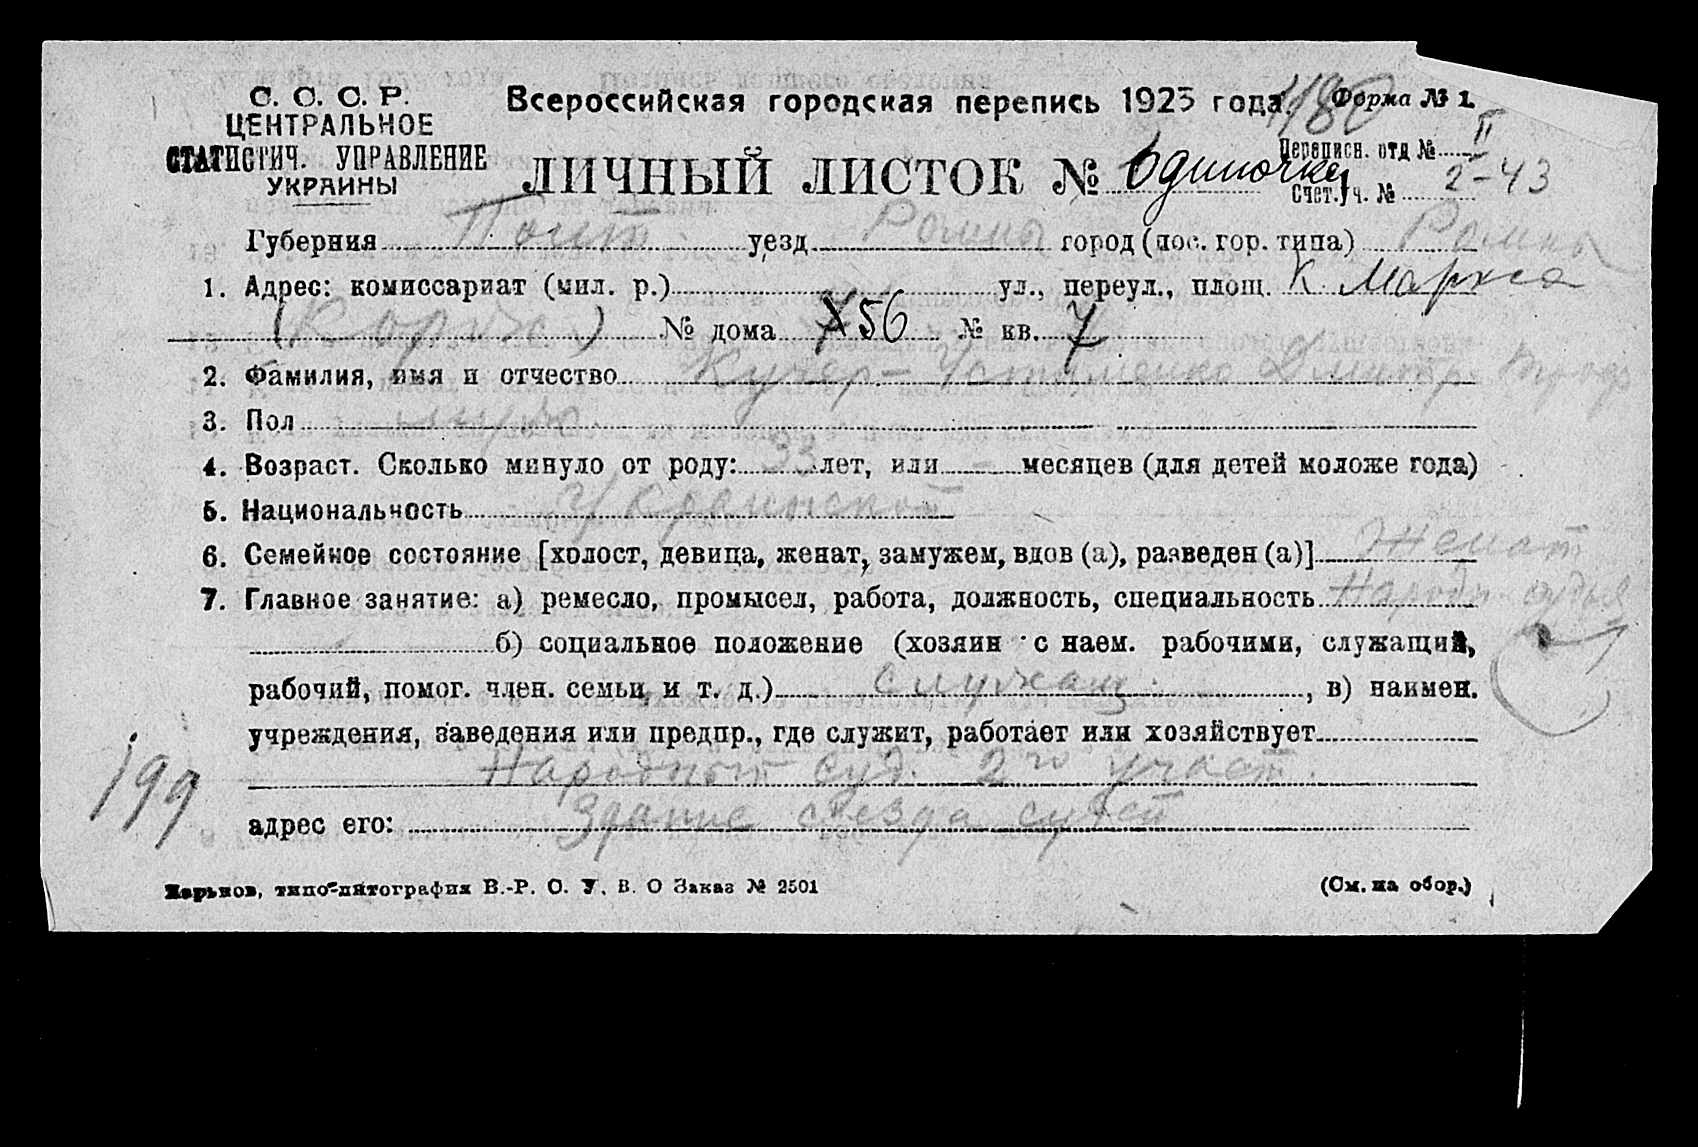 С. С. С. Р.
ЦЕНТРАЛЬНОЕ
СТАТИСТИЧ. УПРАВЛЕНИЕ
УКРАИНЫ
Всероссийская городская перепись 1923 года
Форма № 1.
1180
ЛИЧНЫЙ ЛИСТОК № Одиночку
Переписн. отд № II
Счет. уч. № 2-43
Губерния Полт. уезд Ромны город (пос. гор. типа) Ромны
1. Адрес: комиссариат (мил. р.) ул., переул., площ. К. Маркса
( ) № дома 56 № кв. 7
2. Фамилия, имя и отчество Кучер-Устименко Дмитр. Троф
3. Пол муж
4. Возраст. Сколько минуло от роду: 33 лет, или - месяцев (для детей моложе года)
5. Национальность Украинской
6. Семейное состояние [холост, девица, женат, замужем, вдов (а), разведен (а)] Женат
7. Главное занятие: а) ремесло, промысел, работа, должность, специальность Народн. судья
б) социальное положение (хозяин с наем. рабочими, служащий,
рабочий, помог. член. семьи и т. д.) служащ. , в) наимен.
учреждения, заведения или предпр., где служит, работает или хозяйствует
Народный суд. 2го участ.
адрес его: Здание съезда судей
199
Харьков, типо-литография В.-Р. С. У. В. О Заказ № 2501
(См. на обор.)